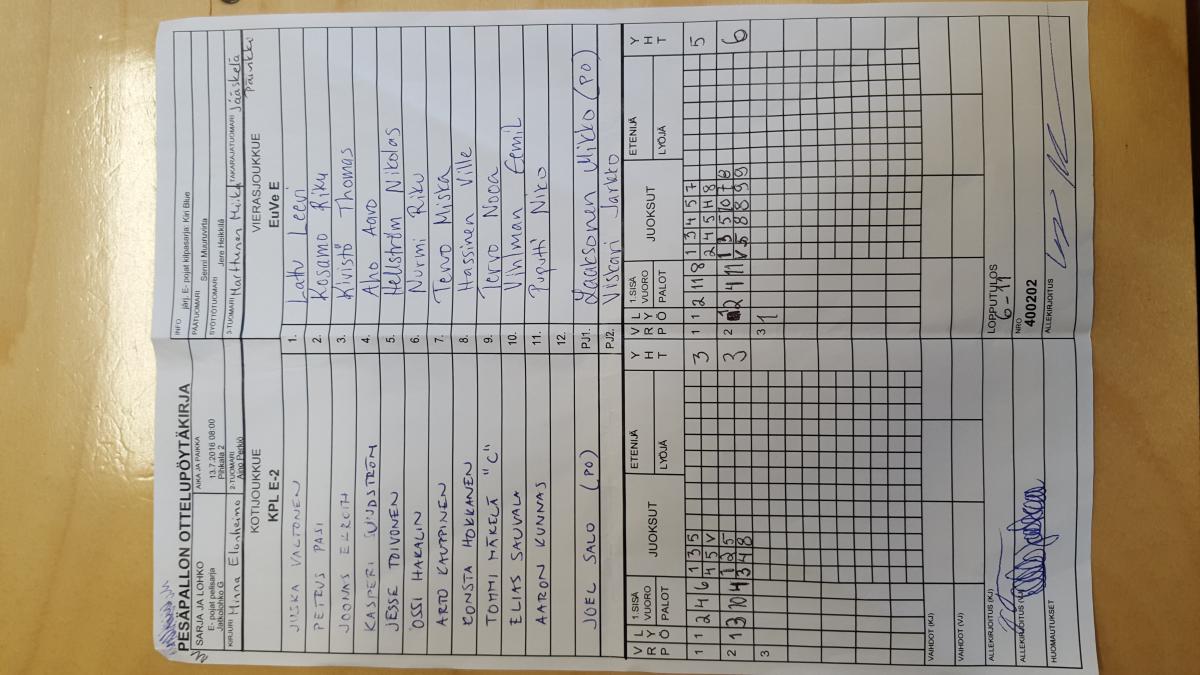 PESÄPALLON OTTELUPÖYTÄKIRJA
SARJA JA LOHKO
E- pojat pelisarja
Jatkolohko G
AIKA JA PAIKKA
13.7.2016 08:00
Pihkala 2
INFO järj. E- pojat kilpasarja: Kiri Blue
PÄÄTUOMARI Senni Muuruvirta
SYÖTTÖTUOMARI Jere Heikkilä
KIRJURI Minna Elonheimo
2-TUOMARI Aino Perkiö
3-TUOMARI Marttunen Mika
TAKARAJATUOMARI Jääskelä Päivikki
KOTIJOUKKUE
KPL E-2
VIERASJOUKKUE
EuVe E
JUSKA VALTONEN 1. Lattu Leevi
PETRUS PASI 2. Kosamo Riku
JOONAS ELROTH 3. Kivistö Thomas
KASPERI SUNDSTRÖM 4. Aho Aaro
JESSE TOIVONEN 5. Hellström Nikolas
OSSI HAKALIN 6. Nurmi Riku
ARTO KAUPPINEN 7. Tervo Miska
KONSTA HOKKANEN 8. Hassinen Ville
TOMMI MÄKELÄ "C" 9. Tervo Nooa
ELIAS SAUVALA 10. Vihlman Eemil
AARON KUNNAS 11. Puputti Niko
12.
JOEL SALO (PO) PJ1. Laaksonen Mikko (PO)
PJ2. Viskari Jarkko
V R P L Y Ö 1.SISÄ VUORO PALOT JUOKSUT ETENIJÄ LYÖJÄ Y H T
V R P L Y Ö 1.SISÄ VUORO PALOT JUOKSUT ETENIJÄ LYÖJÄ Y H T
1 1 2 4 6 1 3 5 3
4 5 V
2 1 3 10 4 1 2 5 3
3 4 8
3
1 1 2 11 8 1 3 4 5 7 5
2 4 5 4 8
2 2 4 11 1 3 5 10 7 8 6
V 5 8 8 9 9
3 1
VAIHDOT (KJ)
VAIHDOT (VJ)
ALLEKIRJOITUS (KJ)
ALLEKIRJOITUS (VJ)
HUOMAUTUKSET
LOPPUTULOS
6 - 11
NRO
400202
ALLEKIRJOITUS